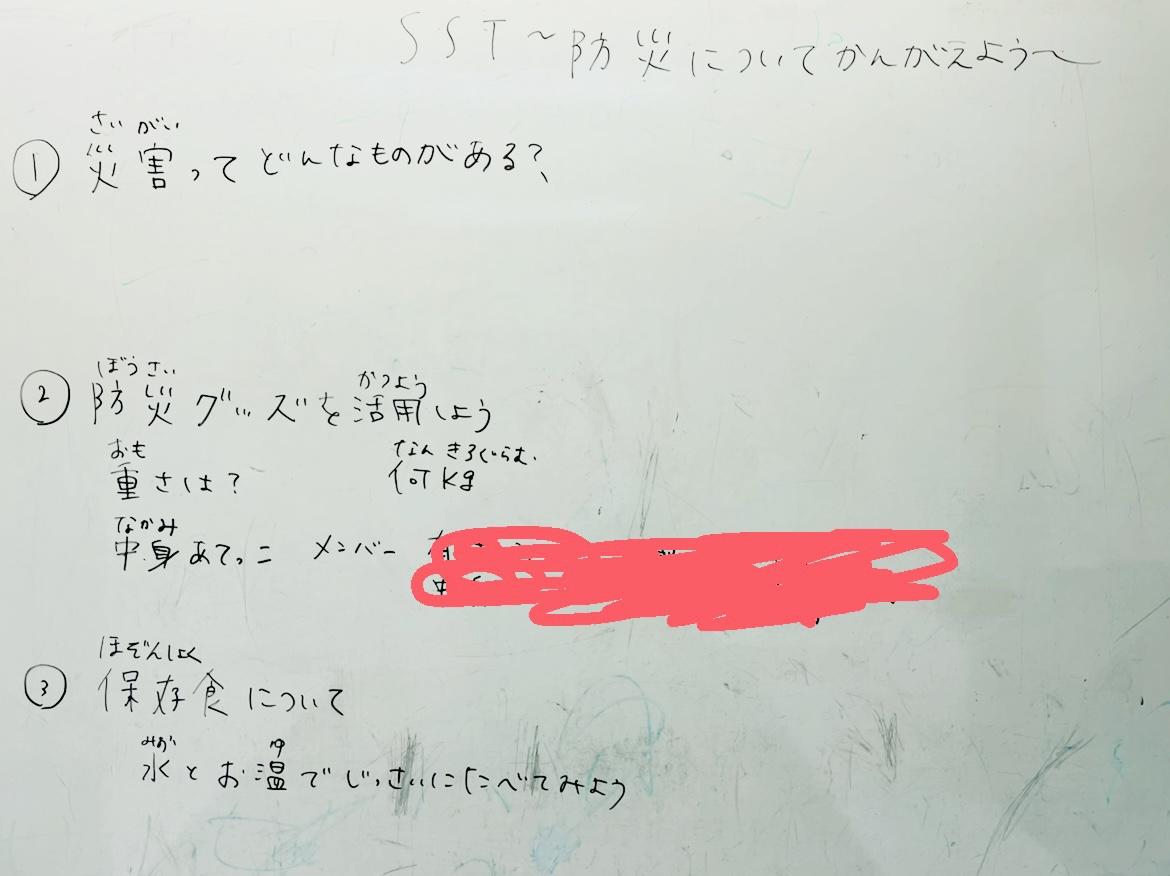 SST~防災についてかんがえよう~
さいがい
① 災害ってどんなものがある?
ぼうさい かつよう
② 防災グッズを活用しよう
おも なんきろぐらむ
重さは? 何kg
なかみ
中身あてっこ メンバー
ほぞんしょく
③ 保存食について
みず ゆ
水とお温でじっさいにたべてみよう